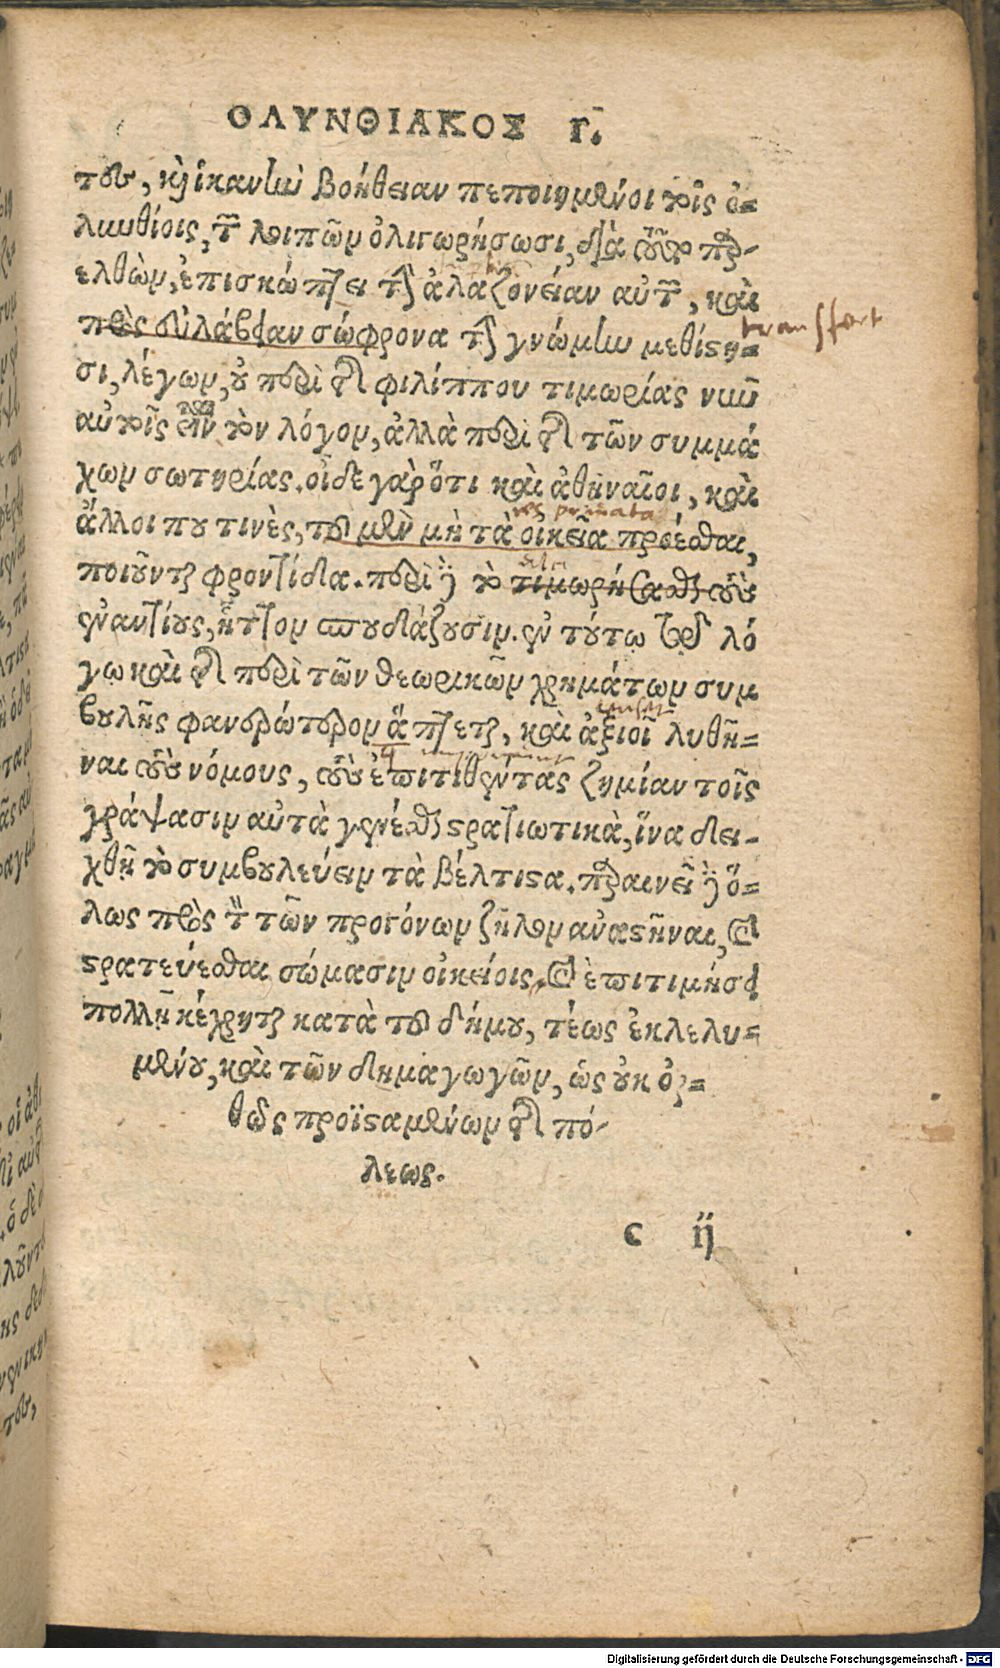 ΟΛΥΝΘΙΑΚΟΣ Γ.
του, καὶ ἱκανὴν βοήθειαν πεποιημένοι τοῖς ὀ=
λυνθίοις, τῶν λοιπῶν ὀλιγωρήσωσι, διὰ τοῦτο παρ-
ελθὼν, ἐπισκώπτει τὴν ἀλαζονείαν αὐτῶν, καὶ
πρὸς εὐλάβειαν σώφρονα τὴν γνώμην μεθίστη=
transfert
σι, λέγων, οὐ περὶ τῆς φιλίππου τιμωρίας νῦν
αὐτοῖς εἶναι τὸν λόγον, ἀλλὰ περὶ τῆς τῶν συμμά
χων σωτηρίας. οἶδε γὰρ ὅτι καὶ ἀθηναῖοι, καὶ
res privata
ἄλλοι που τινὲς, τοῦ μὲν μὴ τὰ οἰκεῖα προέσθαι,
ποιοῦνται φροντίδα. περὶ δὲ τὸ τιμωρήσασθαι τοὺς
ἐναντίους, ἧττον σπουδάζουσιν. ἐν τούτῳ δὲ τῷ λό
γῳ καὶ τῆς περὶ τῶν θεωρικῶν χρημάτων συμ
βουλῆς φανερώτερον ἅπτεται, καὶ ἀξιοῖ λυθῆ=
ναι τοὺς νόμους, τοὺς ἐπιτιθέντας ζημίαν τοῖς
γράψασιν αὐτὰ γενέσθαι στρατιωτικὰ, ἵνα δει-
χθῇ τὸ συμβουλεύειν τὰ βέλτιστα. παραινεῖ δὲ ὅ=
λως πρὸς τὸν τῶν προγόνων ζῆλον ἀναστῆναι, καὶ
στρατεύεσθαι σώμασιν οἰκείοις. καὶ ἐπιτιμήσει
πολλῇ κέχρηται κατὰ τοῦ δήμου, τέως ἐκλελυ=
μένου, καὶ τῶν δημαγωγῶν, ὡς οὐκ ὀρ=
θῶς προϊσταμένων τῆς πό-
λεως.
c ij
Digitalisierung gefördert durch die Deutsche Forschungsgemeinschaft - DFG